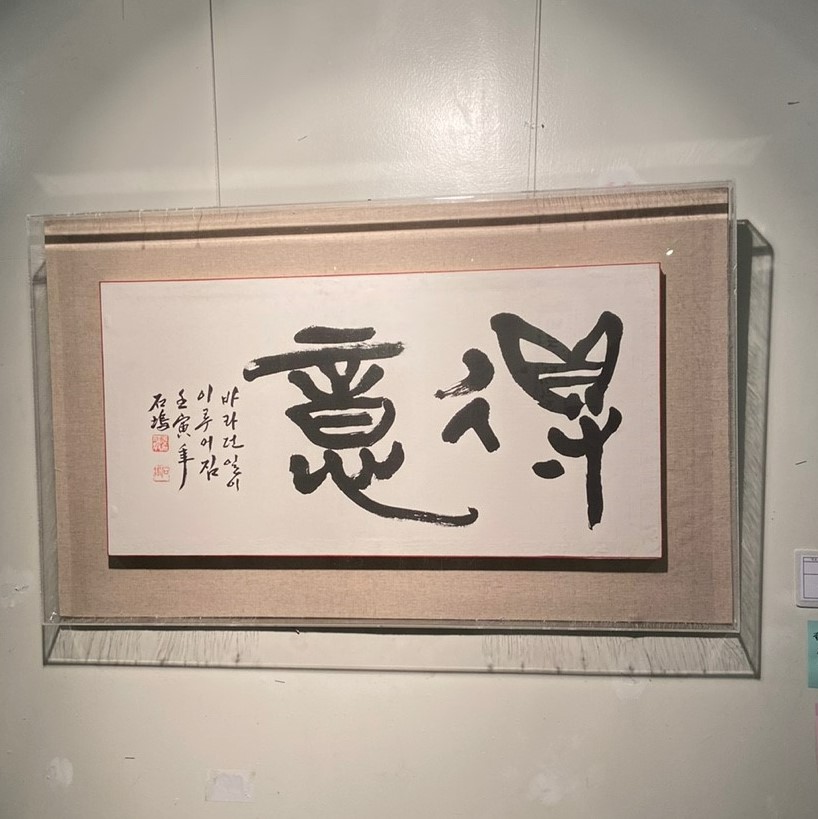 得意
바라던 일이
이루어짐
壬寅年
石塢